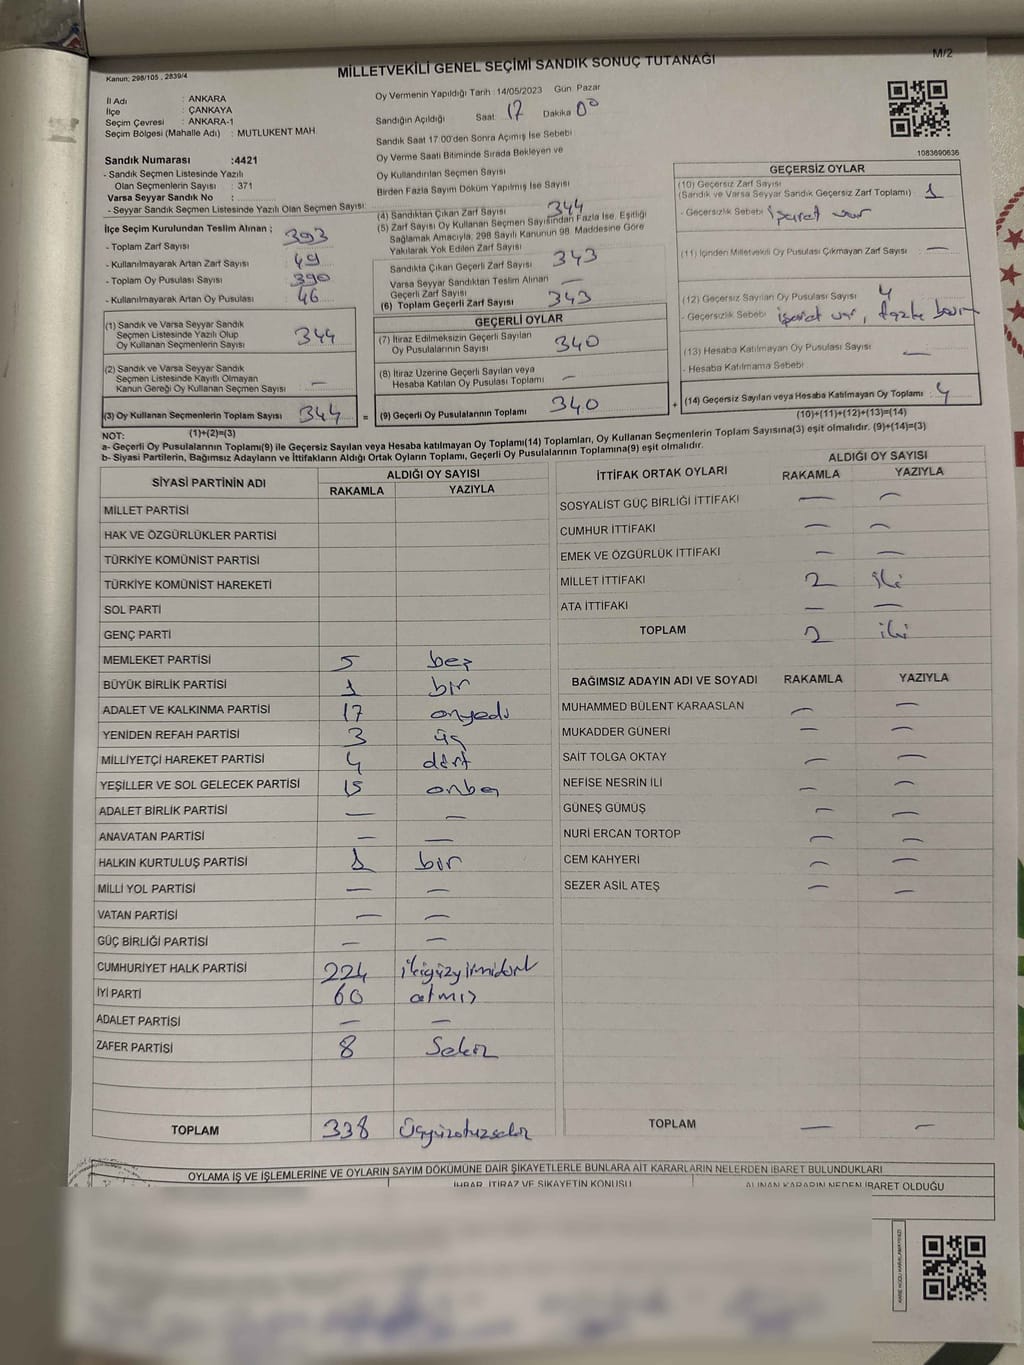 Kanun; 298/105 , 2839/4
MİLLETVEKİLİ GENEL SEÇİMİ SANDIK SONUÇ TUTANAĞI
M/2
İl Adı : ANKARA
İlçe : ÇANKAYA
Seçim Çevresi : ANKARA-1
Seçim Bölgesi (Mahalle Adı) : MUTLUKENT MAH.
Sandık Numarası :4421
- Sandık Seçmen Listesinde Yazılı
Olan Seçmenlerin Sayısı : 371
Varsa Seyyar Sandık No :
- Seyyar Sandık Seçmen Listesinde Yazılı Olan Seçmen Sayısı:
İlçe Seçim Kurulundan Teslim Alınan ;
- Toplam Zarf Sayısı 393
- Kullanılmayarak Artan Zarf Sayısı 49
- Toplam Oy Pusulası Sayısı 390
- Kullanılmayarak Artan Oy Pusulası 46
(1) Sandık ve Varsa Seyyar Sandık
Seçmen Listesinde Yazılı Olup
Oy Kullanan Seçmenlerin Sayısı 344
(2) Sandık ve Varsa Seyyar Sandık
Seçmen Listesinde Kayıtlı Olmayan
Kanun Gereği Oy Kullanan Seçmen Sayısı —
(3) Oy Kullanan Seçmenlerin Toplam Sayısı 344
Oy Vermenin Yapıldığı Tarih : 14/05/2023 Gün Pazar
Sandığın Açıldığı Saat: 17 Dakika 00
Sandık Saat 17.00'den Sonra Açımış İse Sebebi
Oy Verme Saati Bitiminde Sırada Bekleyen ve
Oy Kullandırılan Seçmen Sayısı
Birden Fazla Sayım Döküm Yapılmış İse Sayısı
(4) Sandıktan Çıkan Zarf Sayısı 344
(5) Zarf Sayısı Oy Kullanan Seçmen Sayısından Fazla İse, Eşitliği
Sağlamak Amacıyla, 298 Sayılı Kanunun 98. Maddesine Göre
Yakılarak Yok Edilen Zarf Sayısı
Sandıkta Çıkan Geçerli Zarf Sayısı 343
Varsa Seyyar Sandıktan Teslim Alınan
Geçerli Zarf Sayısı —
(6) Toplam Geçerli Zarf Sayısı 343
GEÇERLİ OYLAR
(7) İtiraz Edilmeksizin Geçerli Sayılan
Oy Pusulalarının Sayısı 340
(8) İtiraz Üzerine Geçerli Sayılan veya
Hesaba Katılan Oy Pusulası Toplamı —
= (9) Geçerli Oy Pusulalarının Toplamı 340
1083690636
GEÇERSİZ OYLAR
(10) Geçersiz Zarf Sayısı
(Sandık ve Varsa Seyyar Sandık Geçersiz Zarf Toplamı) 1
- Geçersizlik Sebebi işaret var
(11) İçinden Milletvekili Oy Pusulası Çıkmayan Zarf Sayısı —
(12) Geçersiz Sayılan Oy Pusulası Sayısı 4
- Geçersizlik Sebebi işaret var, fazla
(13) Hesaba Katılmayan Oy Pusulası Sayısı —
- Hesaba Katılmama Sebebi
+ (14) Geçersiz Sayılan veya Hesaba Katılmayan Oy Toplamı : 4
NOT: (1)+(2)=(3)
(10)+(11)+(12)+(13)=(14)
a- Geçerli Oy Pusulalarının Toplamı(9) ile Geçersiz Sayılan veya Hesaba katılmayan Oy Toplamı(14) Toplamları, Oy Kullanan Seçmenlerin Toplam Sayısına(3) eşit olmalıdır. (9)+(14)=(3)
b- Siyasi Partilerin, Bağımsız Adayların ve İttifakların Aldığı Ortak Oyların Toplamı, Geçerli Oy Pusulalarının Toplamına(9) eşit olmalıdır.
SİYASİ PARTİNİN ADI ALDIĞI OY SAYISI
RAKAMLA YAZIYLA
MİLLET PARTİSİ
HAK VE ÖZGÜRLÜKLER PARTİSİ
TÜRKİYE KOMÜNİST PARTİSİ
TÜRKİYE KOMÜNİST HAREKETİ
SOL PARTİ
GENÇ PARTİ
MEMLEKET PARTİSİ 5 beş
BÜYÜK BİRLİK PARTİSİ 1 bir
ADALET VE KALKINMA PARTİSİ 17 onyedi
YENİDEN REFAH PARTİSİ 3 üç
MİLLİYETÇİ HAREKET PARTİSİ 4 dört
YEŞİLLER VE SOL GELECEK PARTİSİ 15 onbeş
ADALET BİRLİK PARTİSİ — —
ANAVATAN PARTİSİ — —
HALKIN KURTULUŞ PARTİSİ 1 bir
MİLLİ YOL PARTİSİ — —
VATAN PARTİSİ — —
GÜÇ BİRLİĞİ PARTİSİ — —
CUMHURİYET HALK PARTİSİ 224 ikiyüzyirmidört
İYİ PARTİ 60 atmış
ADALET PARTİSİ — —
ZAFER PARTİSİ 8 Sekiz
TOPLAM 338 Üçyüzotuzsekiz
İTTİFAK ORTAK OYLARI ALDIĞI OY SAYISI
RAKAMLA YAZIYLA
SOSYALİST GÜÇ BİRLİĞİ İTTİFAKI — —
CUMHUR İTTİFAKI — —
EMEK VE ÖZGÜRLÜK İTTİFAKI — —
MİLLET İTTİFAKI 2 iki
ATA İTTİFAKI — —
TOPLAM 2 iki
BAĞIMSIZ ADAYIN ADI VE SOYADI RAKAMLA YAZIYLA
MUHAMMED BÜLENT KARAASLAN — —
MUKADDER GÜNERİ — —
SAİT TOLGA OKTAY — —
NEFİSE NESRİN İLİ — —
GÜNEŞ GÜMÜŞ — —
NURİ ERCAN TORTOP — —
CEM KAHYERİ — —
SEZER ASİL ATEŞ — —
TOPLAM — —
OYLAMA İŞ VE İŞLEMLERİNE VE OYLARIN SAYIM DÖKÜMÜNE DAİR ŞİKAYETLERLE BUNLARA AİT KARARLARIN NELERDEN İBARET BULUNDUKLARI
İHBAR, İTİRAZ VE ŞİKAYETİN KONUSU ALINAN KARARIN NEDEN İBARET OLDUĞU